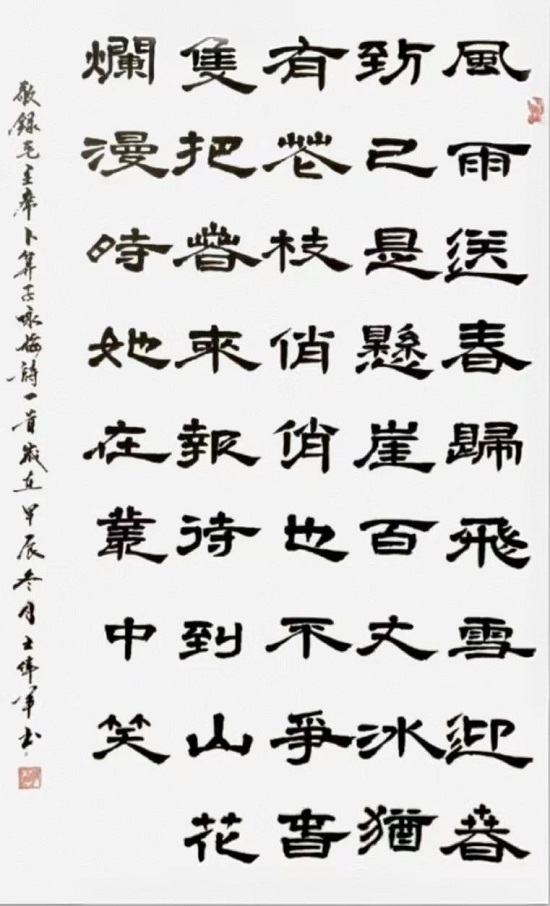 風雨送春歸飛雪迎春
到已是懸崖百丈冰猶
有花枝俏俏也不爭春
隻把春來報待到山花
爛漫時她在叢中笑
敬録毛主席卜算子咏梅詩一首歲在甲辰冬月王偉軍书